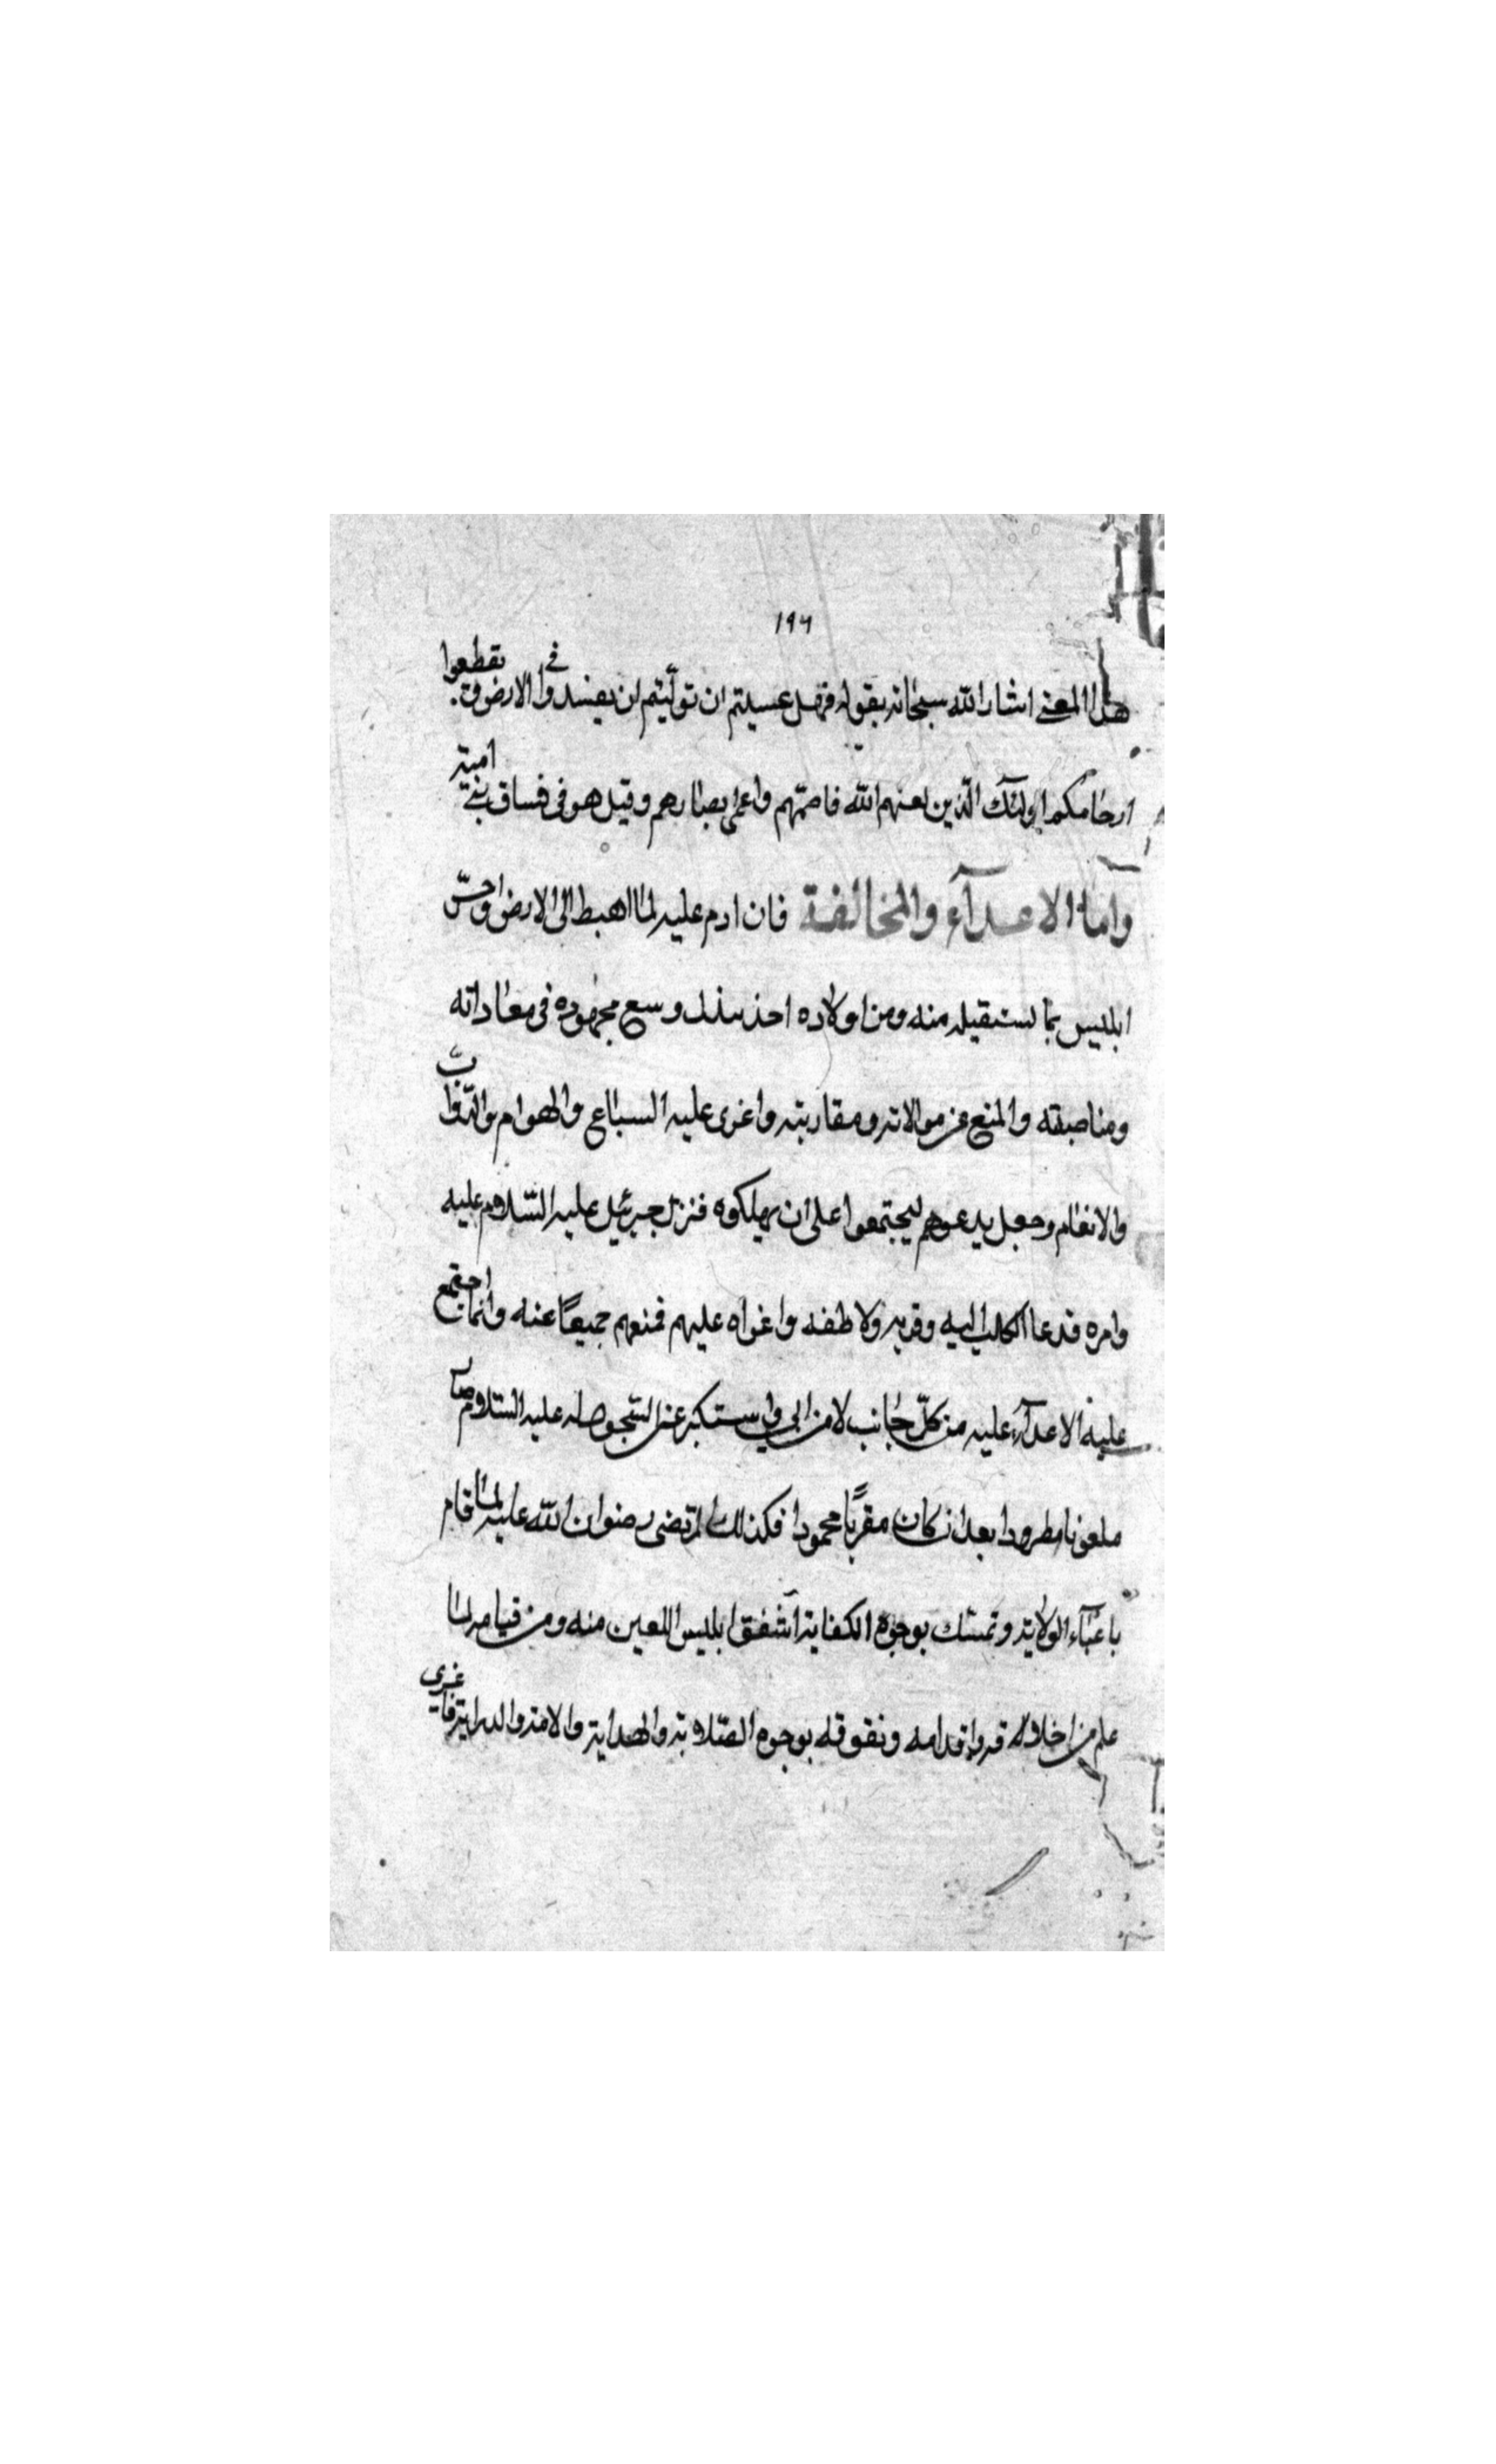 ١٩٦
هذا المعنى اشار الله سبحانه بقوله فهل عسيتم ان تولّيتم ان تفسدوا في الارض وتقطعوا
ارحامكم اولئك الذين لعنهم الله فاصمّهم واعمى بصارهم وقيل هو فى فساق بنى امية
وامّا الاعدآء والمخالفة فان ادم عليه لما اهبط الى الارض واحسّ
ابليس بما يستقبله منه ومن اولاده اخذ يبذل وسع مجهوده فى معاداته
ومناصبته والمنع عن موالاته ومقاربته واغرى عليه السباع والهوام والدّوابّ
والانعام وجعل يدعوهم ليجتمعوا على ان يهلكوه فنزل جبرئيل عليه السّلام عليه
وامره فدعا الكلب اليه وقربه ولاطفه واغراه عليهم فمنعهم جميعًا عنه وانما اجتمع
عليه الاعدآء عليه من كلّ جانب لا من ابى واستكبر عن السّجود له عليه السّلام صار
ملعونا مطرودا بعد ان كان مقربًا محمودا فكذلك المرتضى رضوان الله عليه لما قام
باعبآء الولاية وتمسّك بوجوه الكفاية اشفق ابليس اللعين منه ومن قيامه لما
علم من اخلاقه واقدامه وتفوقه بوجوه الصّلابة والهداية والامة والدراية فاغرى